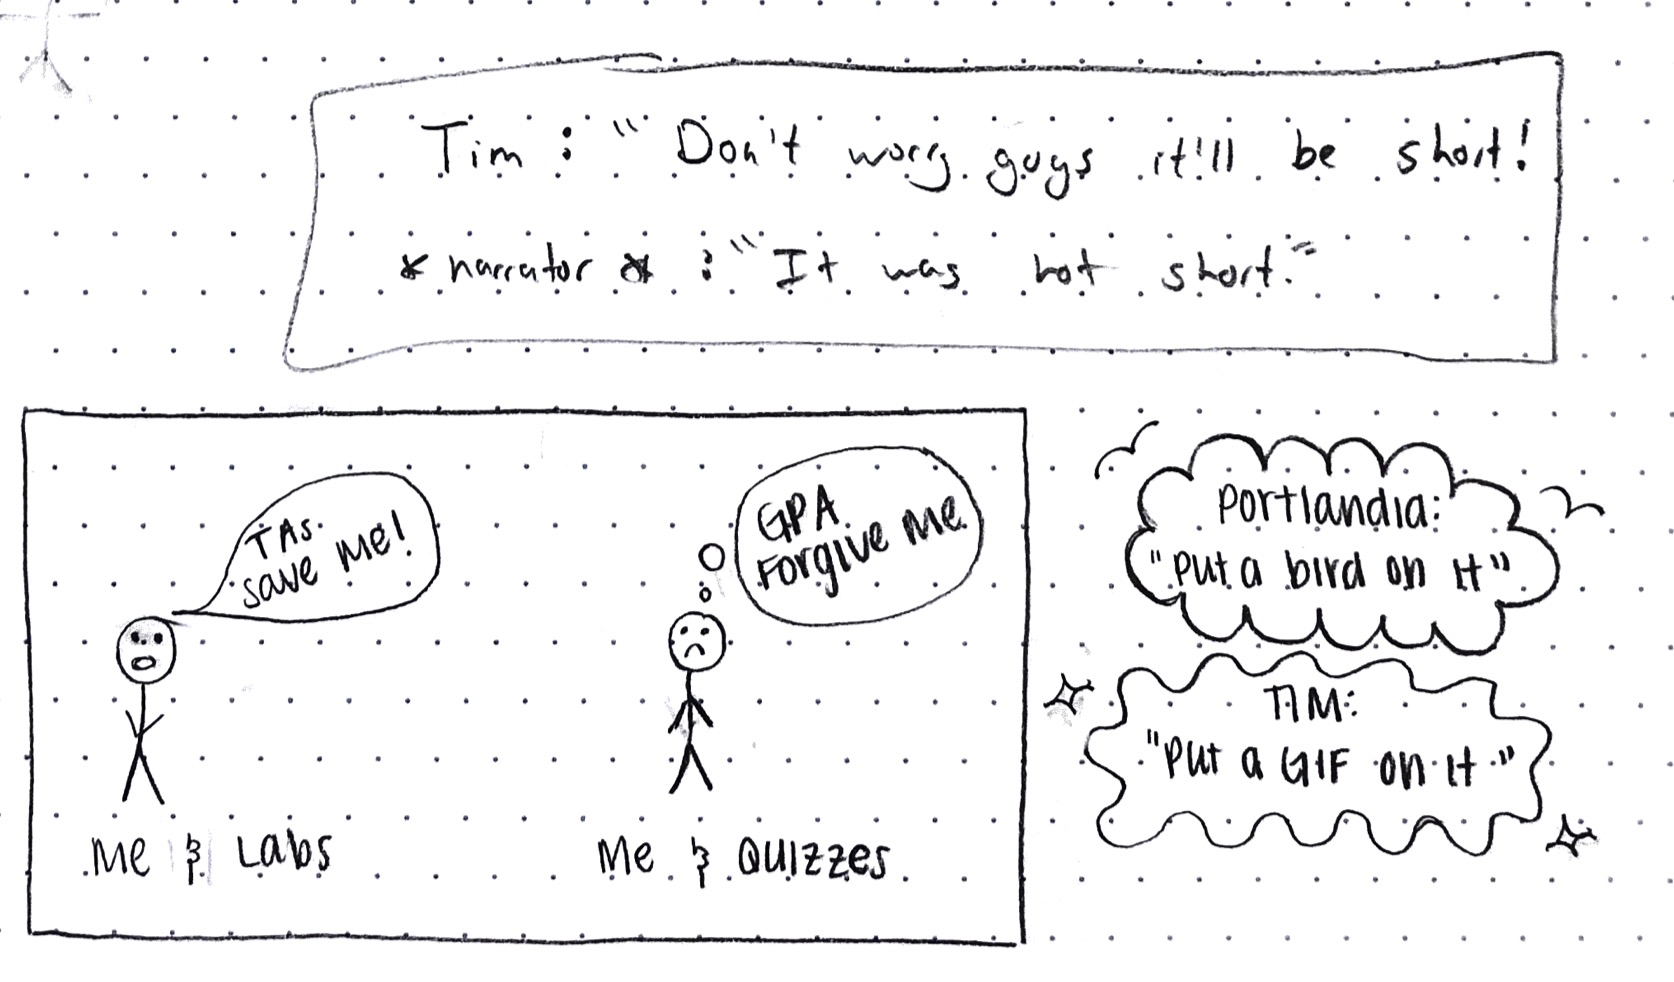 Tim : " Don't worry guys it'll be short!
* narrator * : "It was not short."
TAs
save me!
GPA
Forgive me
Me & Labs
Me & Quizzes
Portlandia:
"Put a bird on it"
TIM:
"Put a GIF on it"